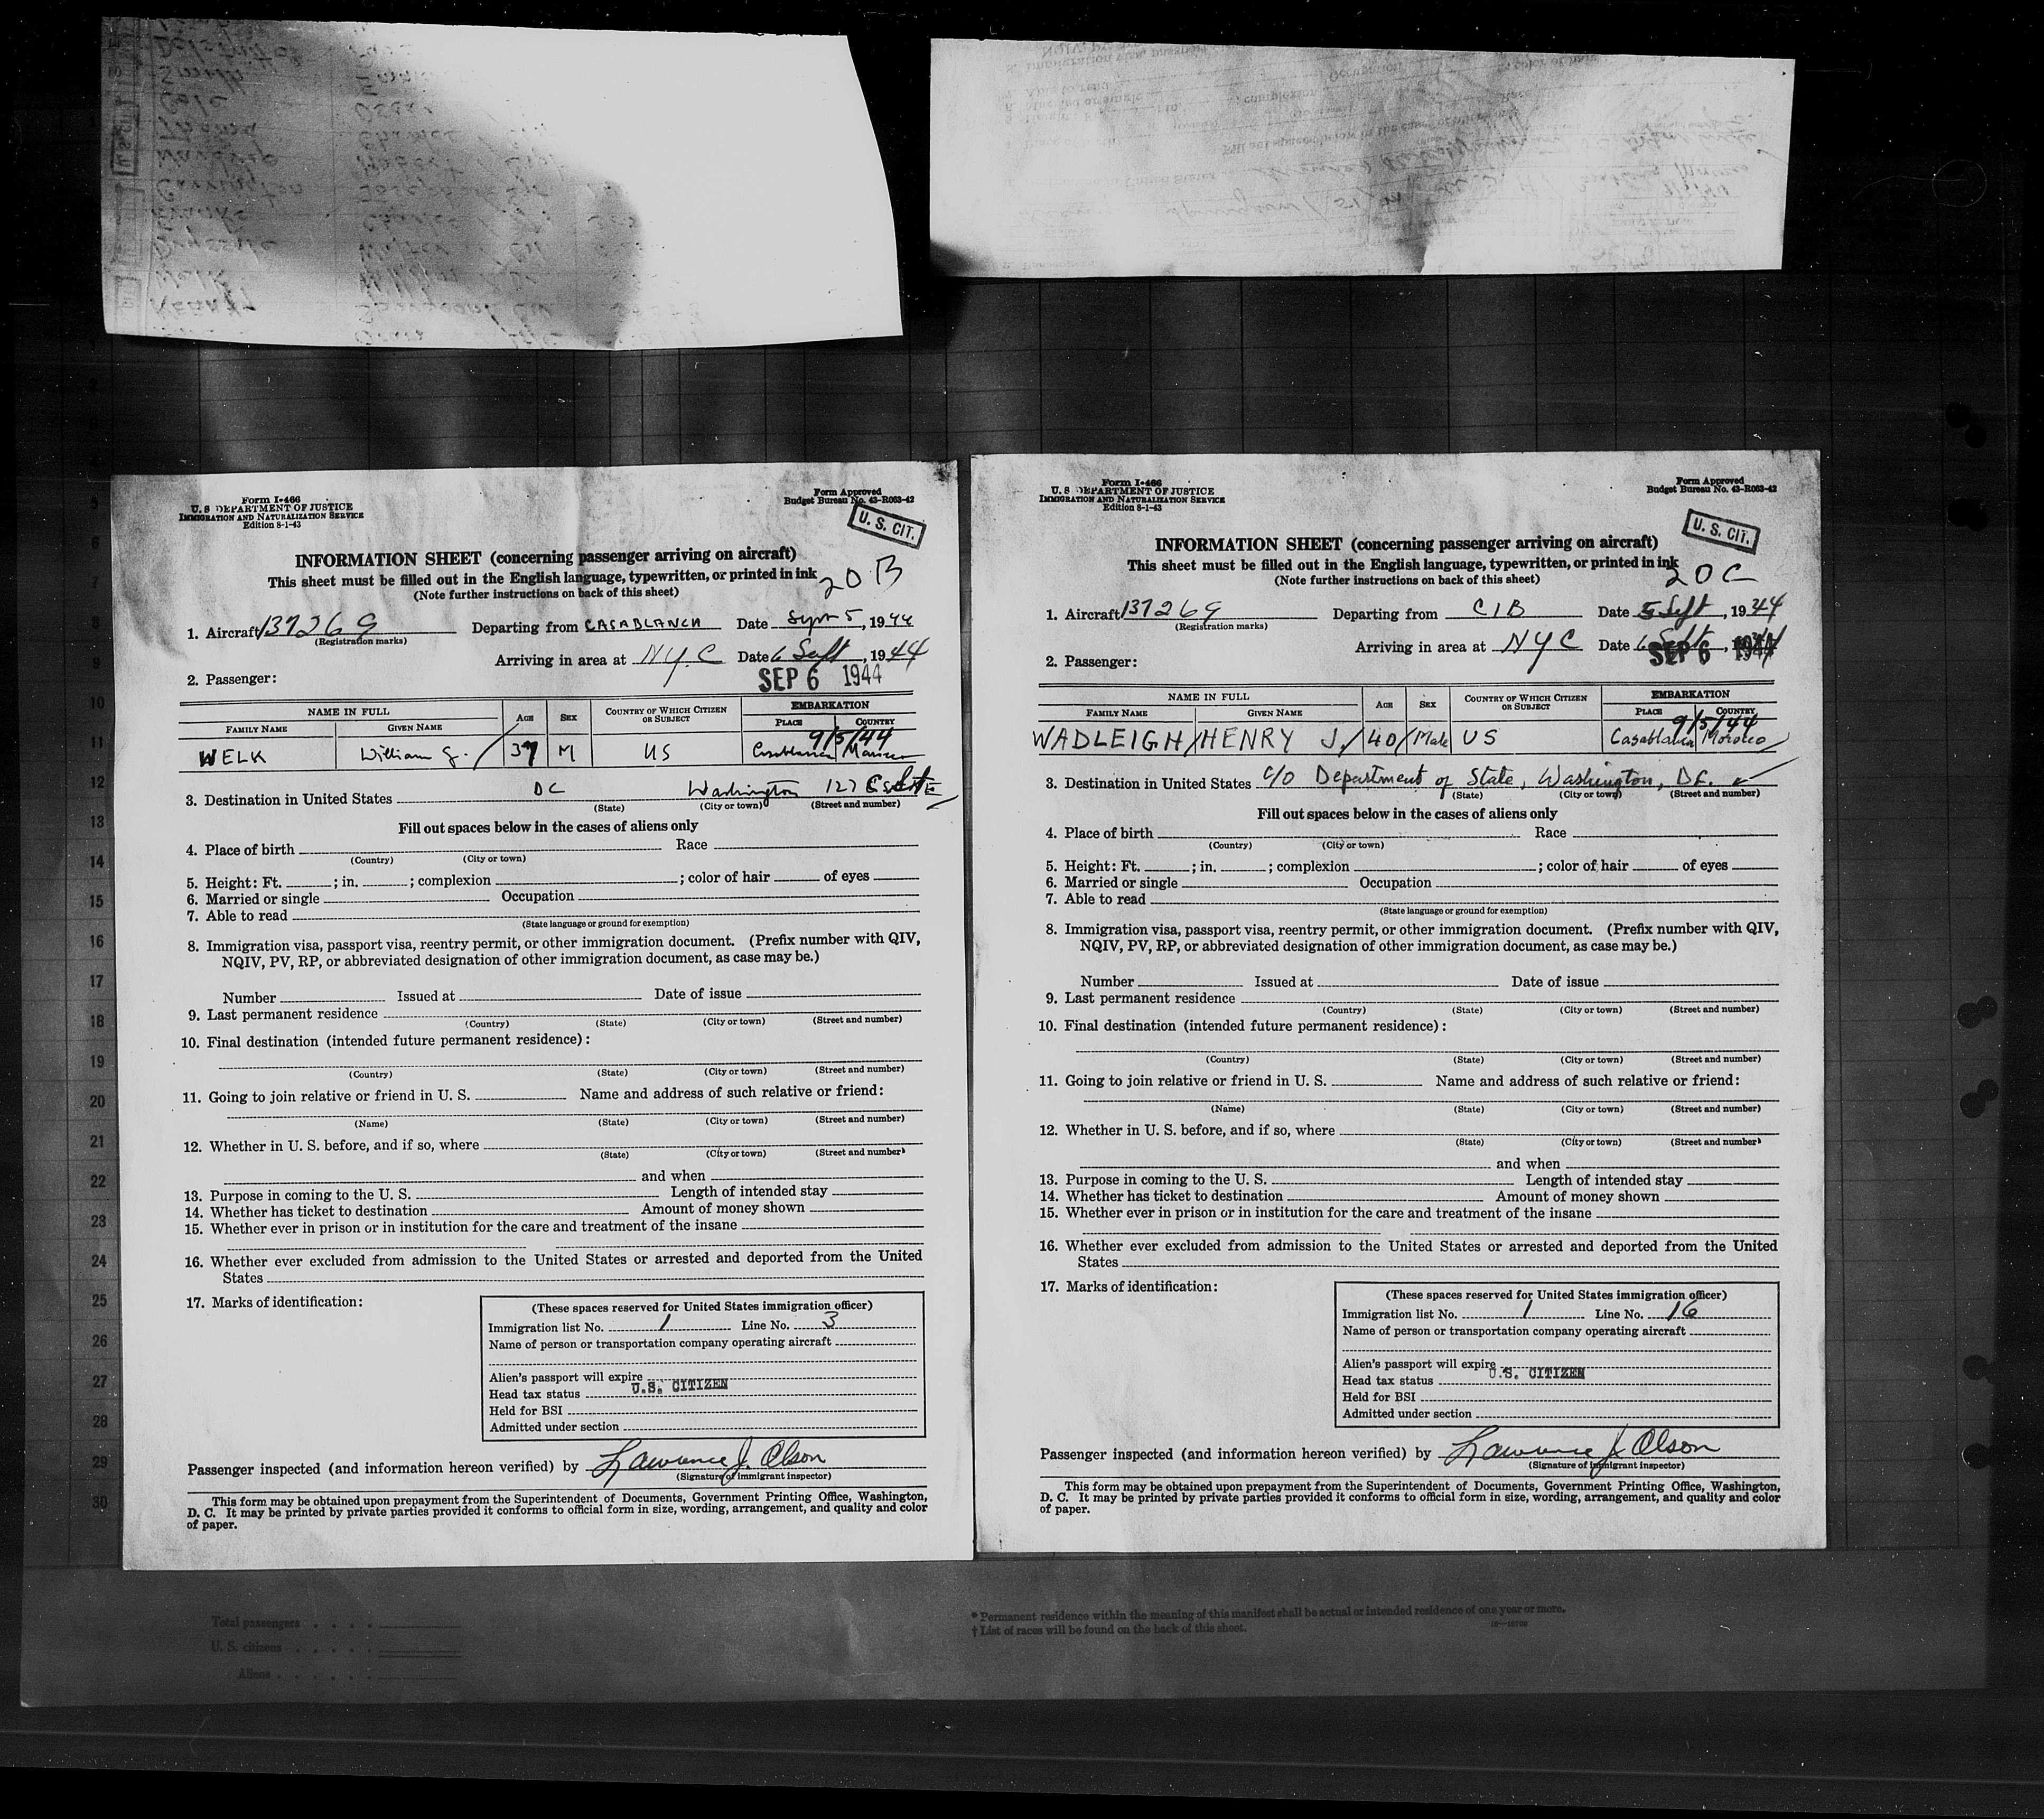 Form I-466
U. S DEPARTMENT OF JUSTICE
IMMIGRATION AND NATURALIZATION SERVICE
Edition 8-1-43
Form Approved
Budget Bureau No. 43-R063-42
U. S. CIT.
INFORMATION SHEET (concerning passenger arriving on aircraft)
This sheet must be filled out in the English language, typewritten, or printed in ink
20 B
(Note further instructions on back of this sheet)
1. Aircraft 137269 Departing from CASABLANCA Date Sept 5, 1944
(Registration marks)
Arriving in area at NYC Date 6 Sept, 1944
2. Passenger:
SEP 6 1944
NAME IN FULL AGE SEX COUNTRY OF WHICH CITIZEN OR SUBJECT EMBARKATION
FAMILY NAME GIVEN NAME PLACE COUNTRY
9/5/44
WELK William G. 37 M US Casablanca Morocco
3. Destination in United States DC Washington 127 E
(State) (City or town) (Street and number)
Fill out spaces below in the cases of aliens only
4. Place of birth Race
(Country) (City or town)
5. Height: Ft. ; in. ; complexion ; color of hair of eyes
6. Married or single Occupation
7. Able to read
(State language or ground for exemption)
8. Immigration visa, passport visa, reentry permit, or other immigration document. (Prefix number with QIV,
NQIV, PV, RP, or abbreviated designation of other immigration document, as case may be.)
Number Issued at Date of issue
9. Last permanent residence
(Country) (State) (City or town) (Street and number)
10. Final destination (intended future permanent residence):
(Country) (State) (City or town) (Street and number)
11. Going to join relative or friend in U. S. Name and address of such relative or friend:
(Name) (State) (City or town) (Street and number)
12. Whether in U. S. before, and if so, where
(State) (City or town) (Street and number)
and when
13. Purpose in coming to the U. S. Length of intended stay
14. Whether has ticket to destination Amount of money shown
15. Whether ever in prison or in institution for the care and treatment of the insane
16. Whether ever excluded from admission to the United States or arrested and deported from the United
States
17. Marks of identification:
(These spaces reserved for United States immigration officer)
Immigration list No. 1 Line No. 3
Name of person or transportation company operating aircraft
Alien's passport will expire
U.S. CITIZEN
Head tax status
Held for BSI
Admitted under section
Passenger inspected (and information hereon verified) by Lawrence J. Olson
(Signature of immigrant inspector)
This form may be obtained upon prepayment from the Superintendent of Documents, Government Printing Office, Washington,
D. C. It may be printed by private parties provided it conforms to official form in size, wording, arrangement, and quality and color
of paper.
Form I-466
U. S DEPARTMENT OF JUSTICE
IMMIGRATION AND NATURALIZATION SERVICE
Edition 8-1-43
Form Approved
Budget Bureau No. 43-R063-42
U. S. CIT.
INFORMATION SHEET (concerning passenger arriving on aircraft)
This sheet must be filled out in the English language, typewritten, or printed in ink
20 C
(Note further instructions on back of this sheet)
1. Aircraft 137269 Departing from CIB Date 5 Sept, 1944
(Registration marks)
Arriving in area at NYC Date 6 Sept, 1944
SEP 6 1944
2. Passenger:
NAME IN FULL AGE SEX COUNTRY OF WHICH CITIZEN OR SUBJECT EMBARKATION
FAMILY NAME GIVEN NAME PLACE COUNTRY
9/5/44
WADLEIGH HENRY J. 40 Male US Casablanca Morocco
3. Destination in United States C/O Department of State, Washington, D.C.
(State) (City or town) (Street and number)
Fill out spaces below in the cases of aliens only
4. Place of birth Race
(Country) (City or town)
5. Height: Ft. ; in. ; complexion ; color of hair of eyes
6. Married or single Occupation
7. Able to read
(State language or ground for exemption)
8. Immigration visa, passport visa, reentry permit, or other immigration document. (Prefix number with QIV,
NQIV, PV, RP, or abbreviated designation of other immigration document, as case may be.)
Number Issued at Date of issue
9. Last permanent residence
(Country) (State) (City or town) (Street and number)
10. Final destination (intended future permanent residence):
(Country) (State) (City or town) (Street and number)
11. Going to join relative or friend in U. S. Name and address of such relative or friend:
(Name) (State) (City or town) (Street and number)
12. Whether in U. S. before, and if so, where
(State) (City or town) (Street and number)
and when
13. Purpose in coming to the U. S. Length of intended stay
14. Whether has ticket to destination Amount of money shown
15. Whether ever in prison or in institution for the care and treatment of the insane
16. Whether ever excluded from admission to the United States or arrested and deported from the United
States
17. Marks of identification:
(These spaces reserved for United States immigration officer)
Immigration list No. 1 Line No. 16
Name of person or transportation company operating aircraft
Alien's passport will expire
U.S. CITIZEN
Head tax status
Held for BSI
Admitted under section
Passenger inspected (and information hereon verified) by Lawrence J. Olson
(Signature of immigrant inspector)
This form may be obtained upon prepayment from the Superintendent of Documents, Government Printing Office, Washington,
D. C. It may be printed by private parties provided it conforms to official form in size, wording, arrangement, and quality and color
of paper.
5
6
7
8
9
10
11
12
13
14
15
16
17
18
19
20
21
22
23
24
25
26
27
28
29
30
Total passengers
U. S. citizens
Aliens
* Permanent residence within the meaning of this manifest shall be actual or intended residence of one year or more.
† List of races will be found on the back of this sheet.